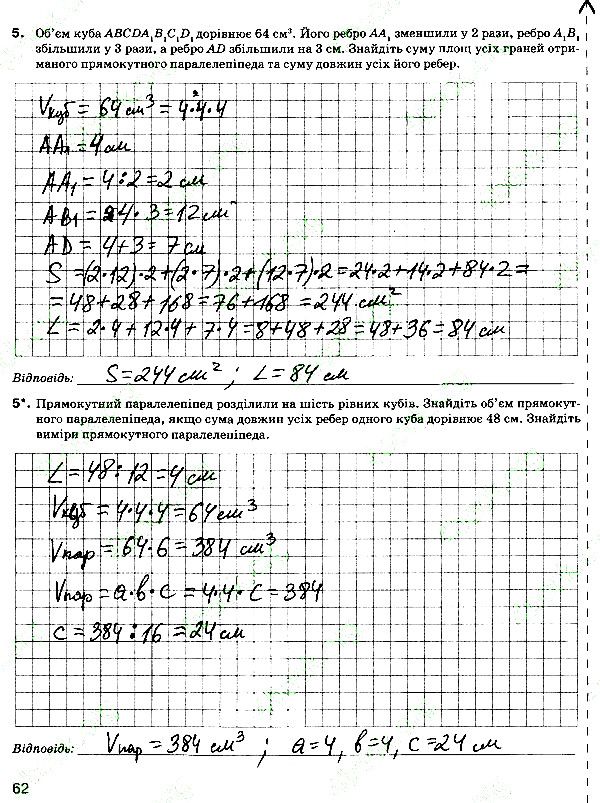 5. Об'єм куба ABCDA₁B₁C₁D₁ дорівнює 64 см³. Його ребро AA₁ зменшили у 2 рази, ребро A₁B₁
збільшили у 3 рази, а ребро AD збільшили на 3 см. Знайдіть суму площ усіх граней отри-
маного прямокутного паралелепіпеда та суму довжин усіх його ребер.
Vкуб = 64 см³ = 4·4·4
AA₁ = 4 см
AA₁ = 4:2 = 2 см
AB₁ = 4·3 = 12 см
AD = 4+3 = 7 см
S = (2·12)·2+(2·7)·2+(12·7)·2 = 24·2+14·2+84·2 =
= 48+28+168 = 76+168 = 244 см²
L = 2·4+12·4+7·4 = 8+48+28 = 48+36 = 84 см
Відповідь: S = 244 см² ; L = 84 см
5*. Прямокутний паралелепіпед розділили на шість рівних кубів. Знайдіть об'єм прямокут-
ного паралелепіпеда, якщо сума довжин усіх ребер одного куба дорівнює 48 см. Знайдіть
виміри прямокутного паралелепіпеда.
L = 48:12 = 4 см
Vкуб = 4·4·4 = 64 см³
Vпар = 64·6 = 384 см³
Vпар = a·в·c = 4·4·c = 384
c = 384:16 = 24 см
Відповідь: Vпар = 384 см³ ; a=4, в=4, c=24 см
62